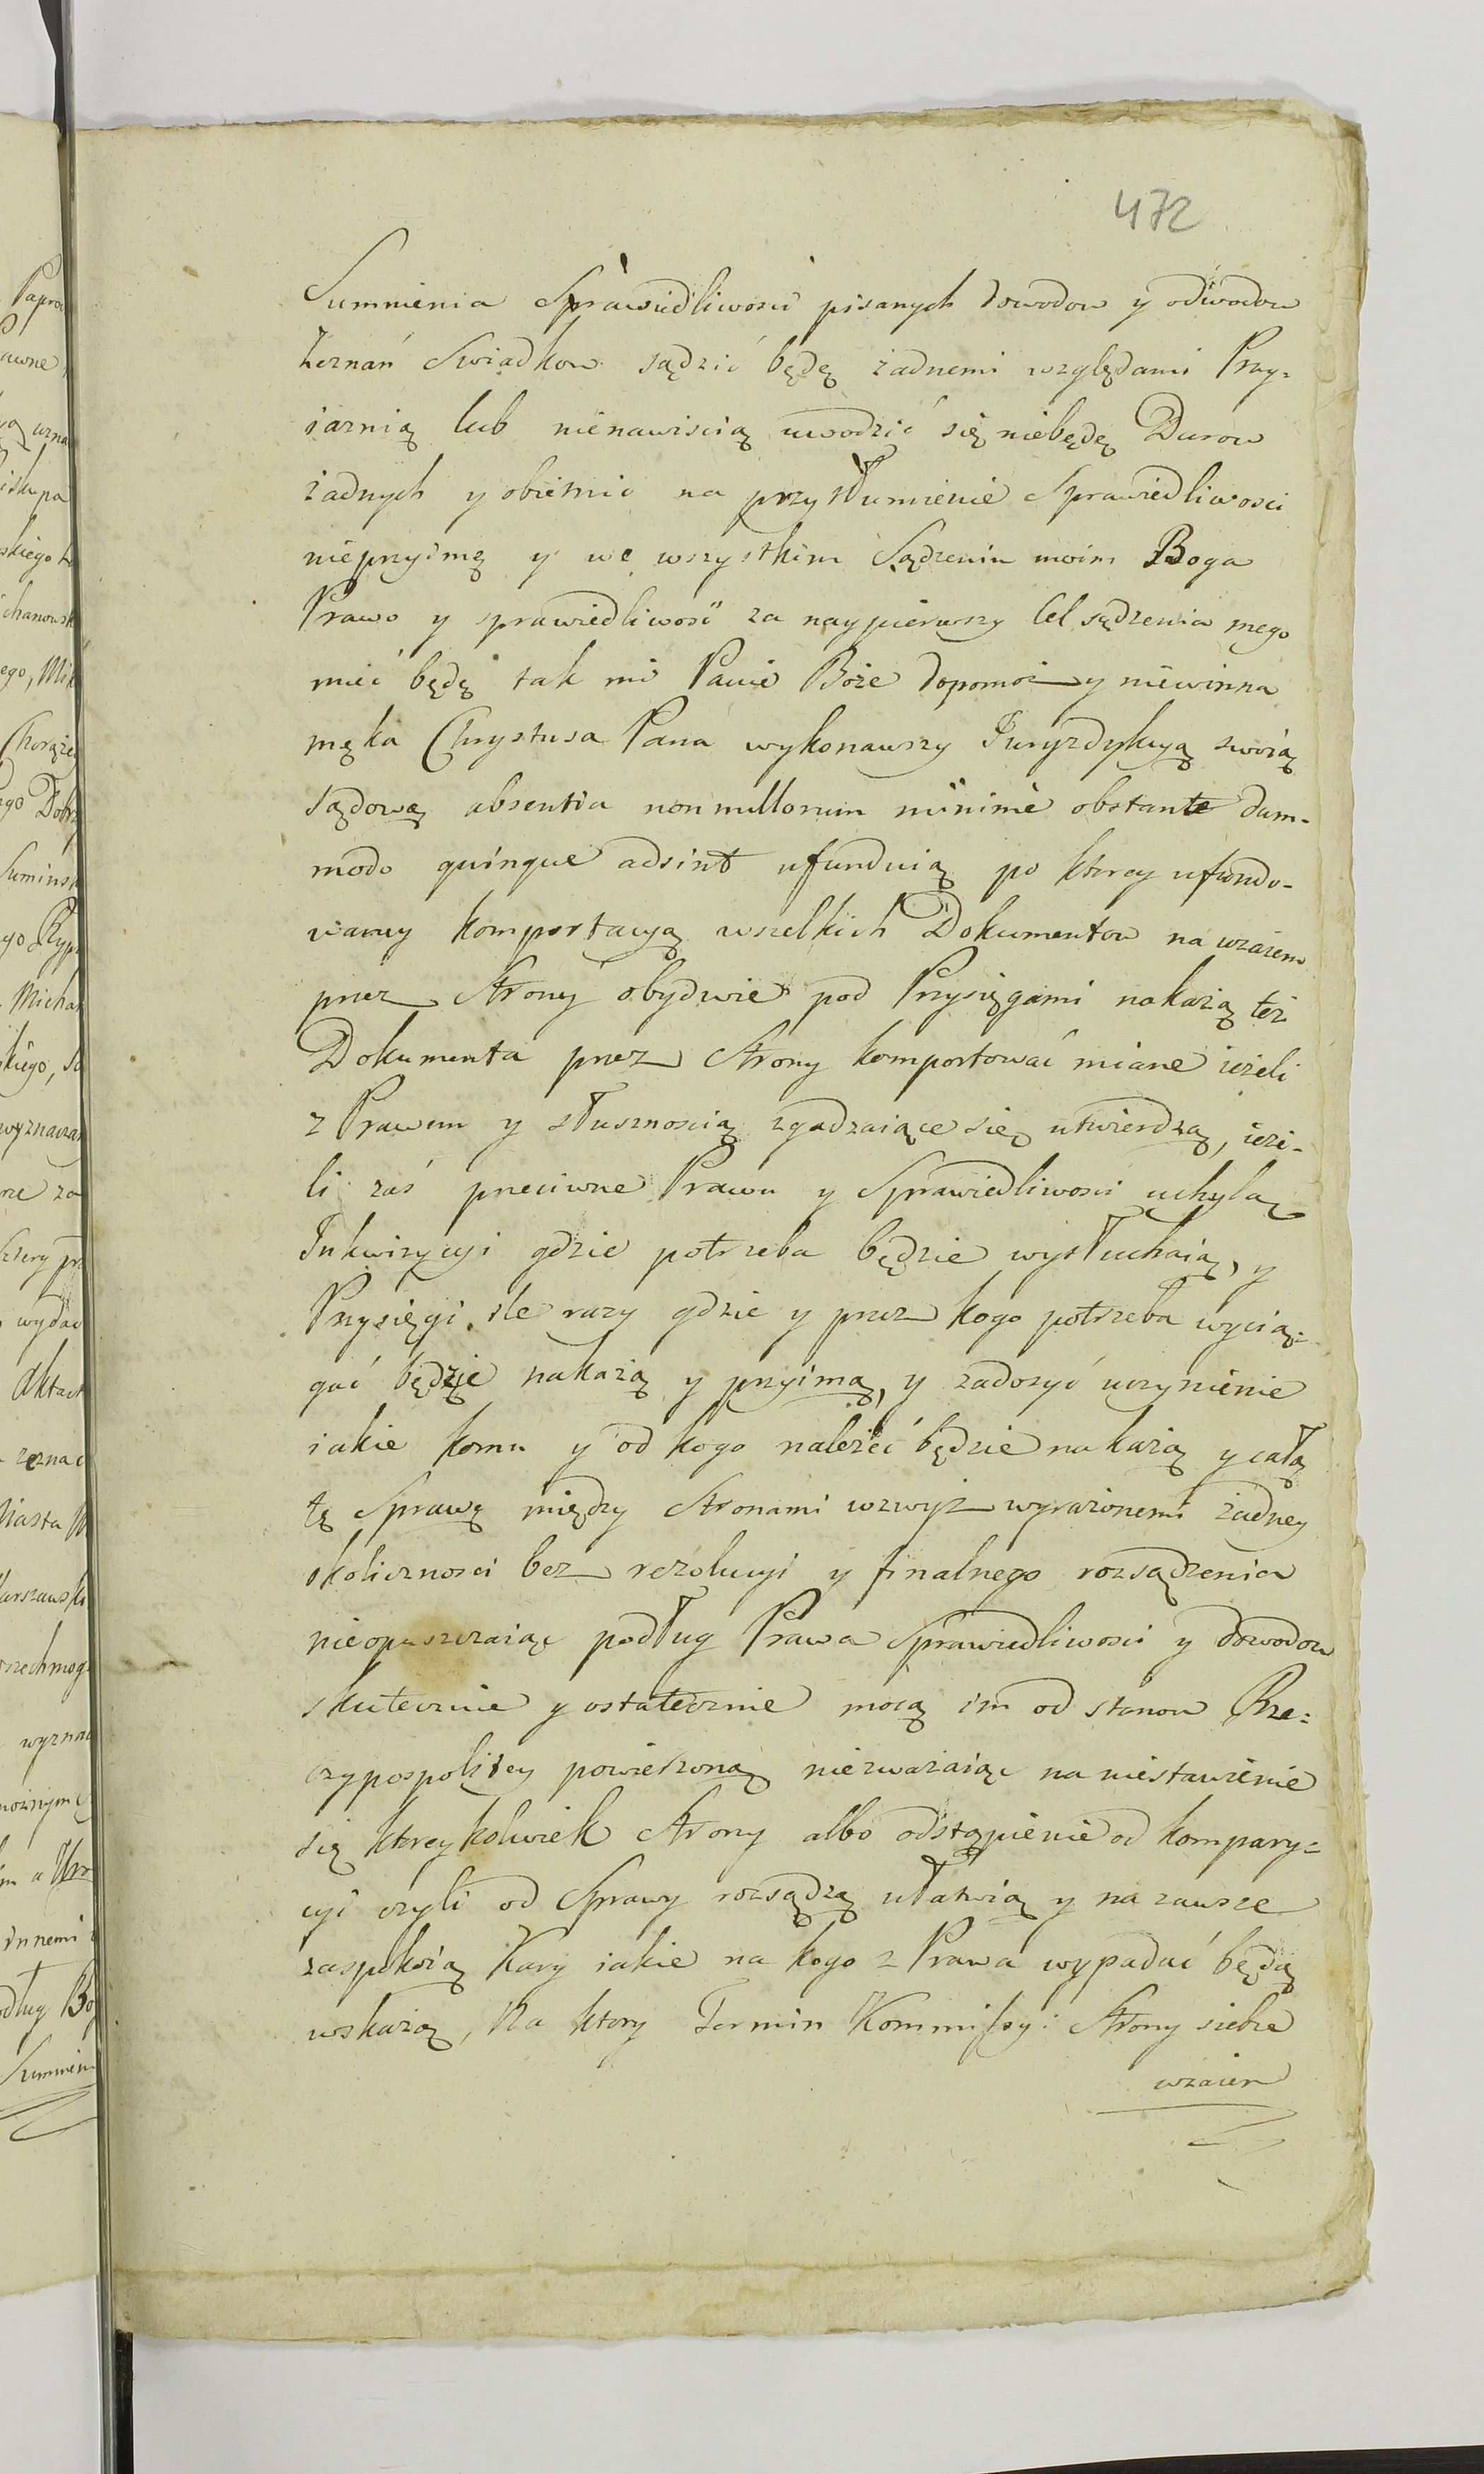 472
Sumnienia Sprawiedliwości pisanych dowodow y odwodow
zeznań Swiadkow sądzić będę żadnemi względami Przy-
iaznią lub nienawiscią uwodzić się niebędę Darow
żadnych y obietnic na przytłumienie Sprawiedliwosci
nieprzyimę y we wszystkim Sądzeniu moim Boga
Prawo y sprawiedliwość za naypierwszy Cel sądzenia mego
mieć będę tak mi Panie Boże dopomoż y niewinna
męka Chrystusa Pana wykonawszy Juryzdykcyą swoią
sądową absentia nonnullorum minimè obstante dum-
modo quinque adsint ufunduią po ktorey ufundo-
waney komportacyą wszelkich Dokumentow na wzaiem
przez Strony obydwie pod Przysięgami nakażą też
Dokumenta przez Strony komportować miane ieżeli
z Prawem y słusznoscią zgadzaiące się utwierdzą, ieże-
li zaś przeciwne Prawu y Sprawiedliwosci uchylą
Inkwizycyi gdzie potrzeba będzie wysłuchaią, y
Przysięgi ile razy gdzie y przez kogo potrzeba wycią-
gać będzie nakażą y przyimą, y zadosyć uczynienie
iakie komu y od kogo należeć będzie nakażą y całą
tę Sprawę między Stronami wzwyż wyrażonemi żadney
okolicznosci bez rezolucyi y finalnego rozsądzenia
nieopuszczaiąc podług Prawa Sprawiedliwosci y dowodow
skutecznie y ostatecznie mocą im od stanow Rze-
czypospolitey powierzoną niezważaiąc na niestawienie
się ktoreykolwiek Strony albo odstąpienie od kompary-
cyi czyli od Sprawy rozsądzą ułatwią y na zawsze
zaspokoią Kary iakie na kogo z Prawa wypadać będą
wskażą, Na ktory Termin Kommissyi Strony siebie
wzaiem